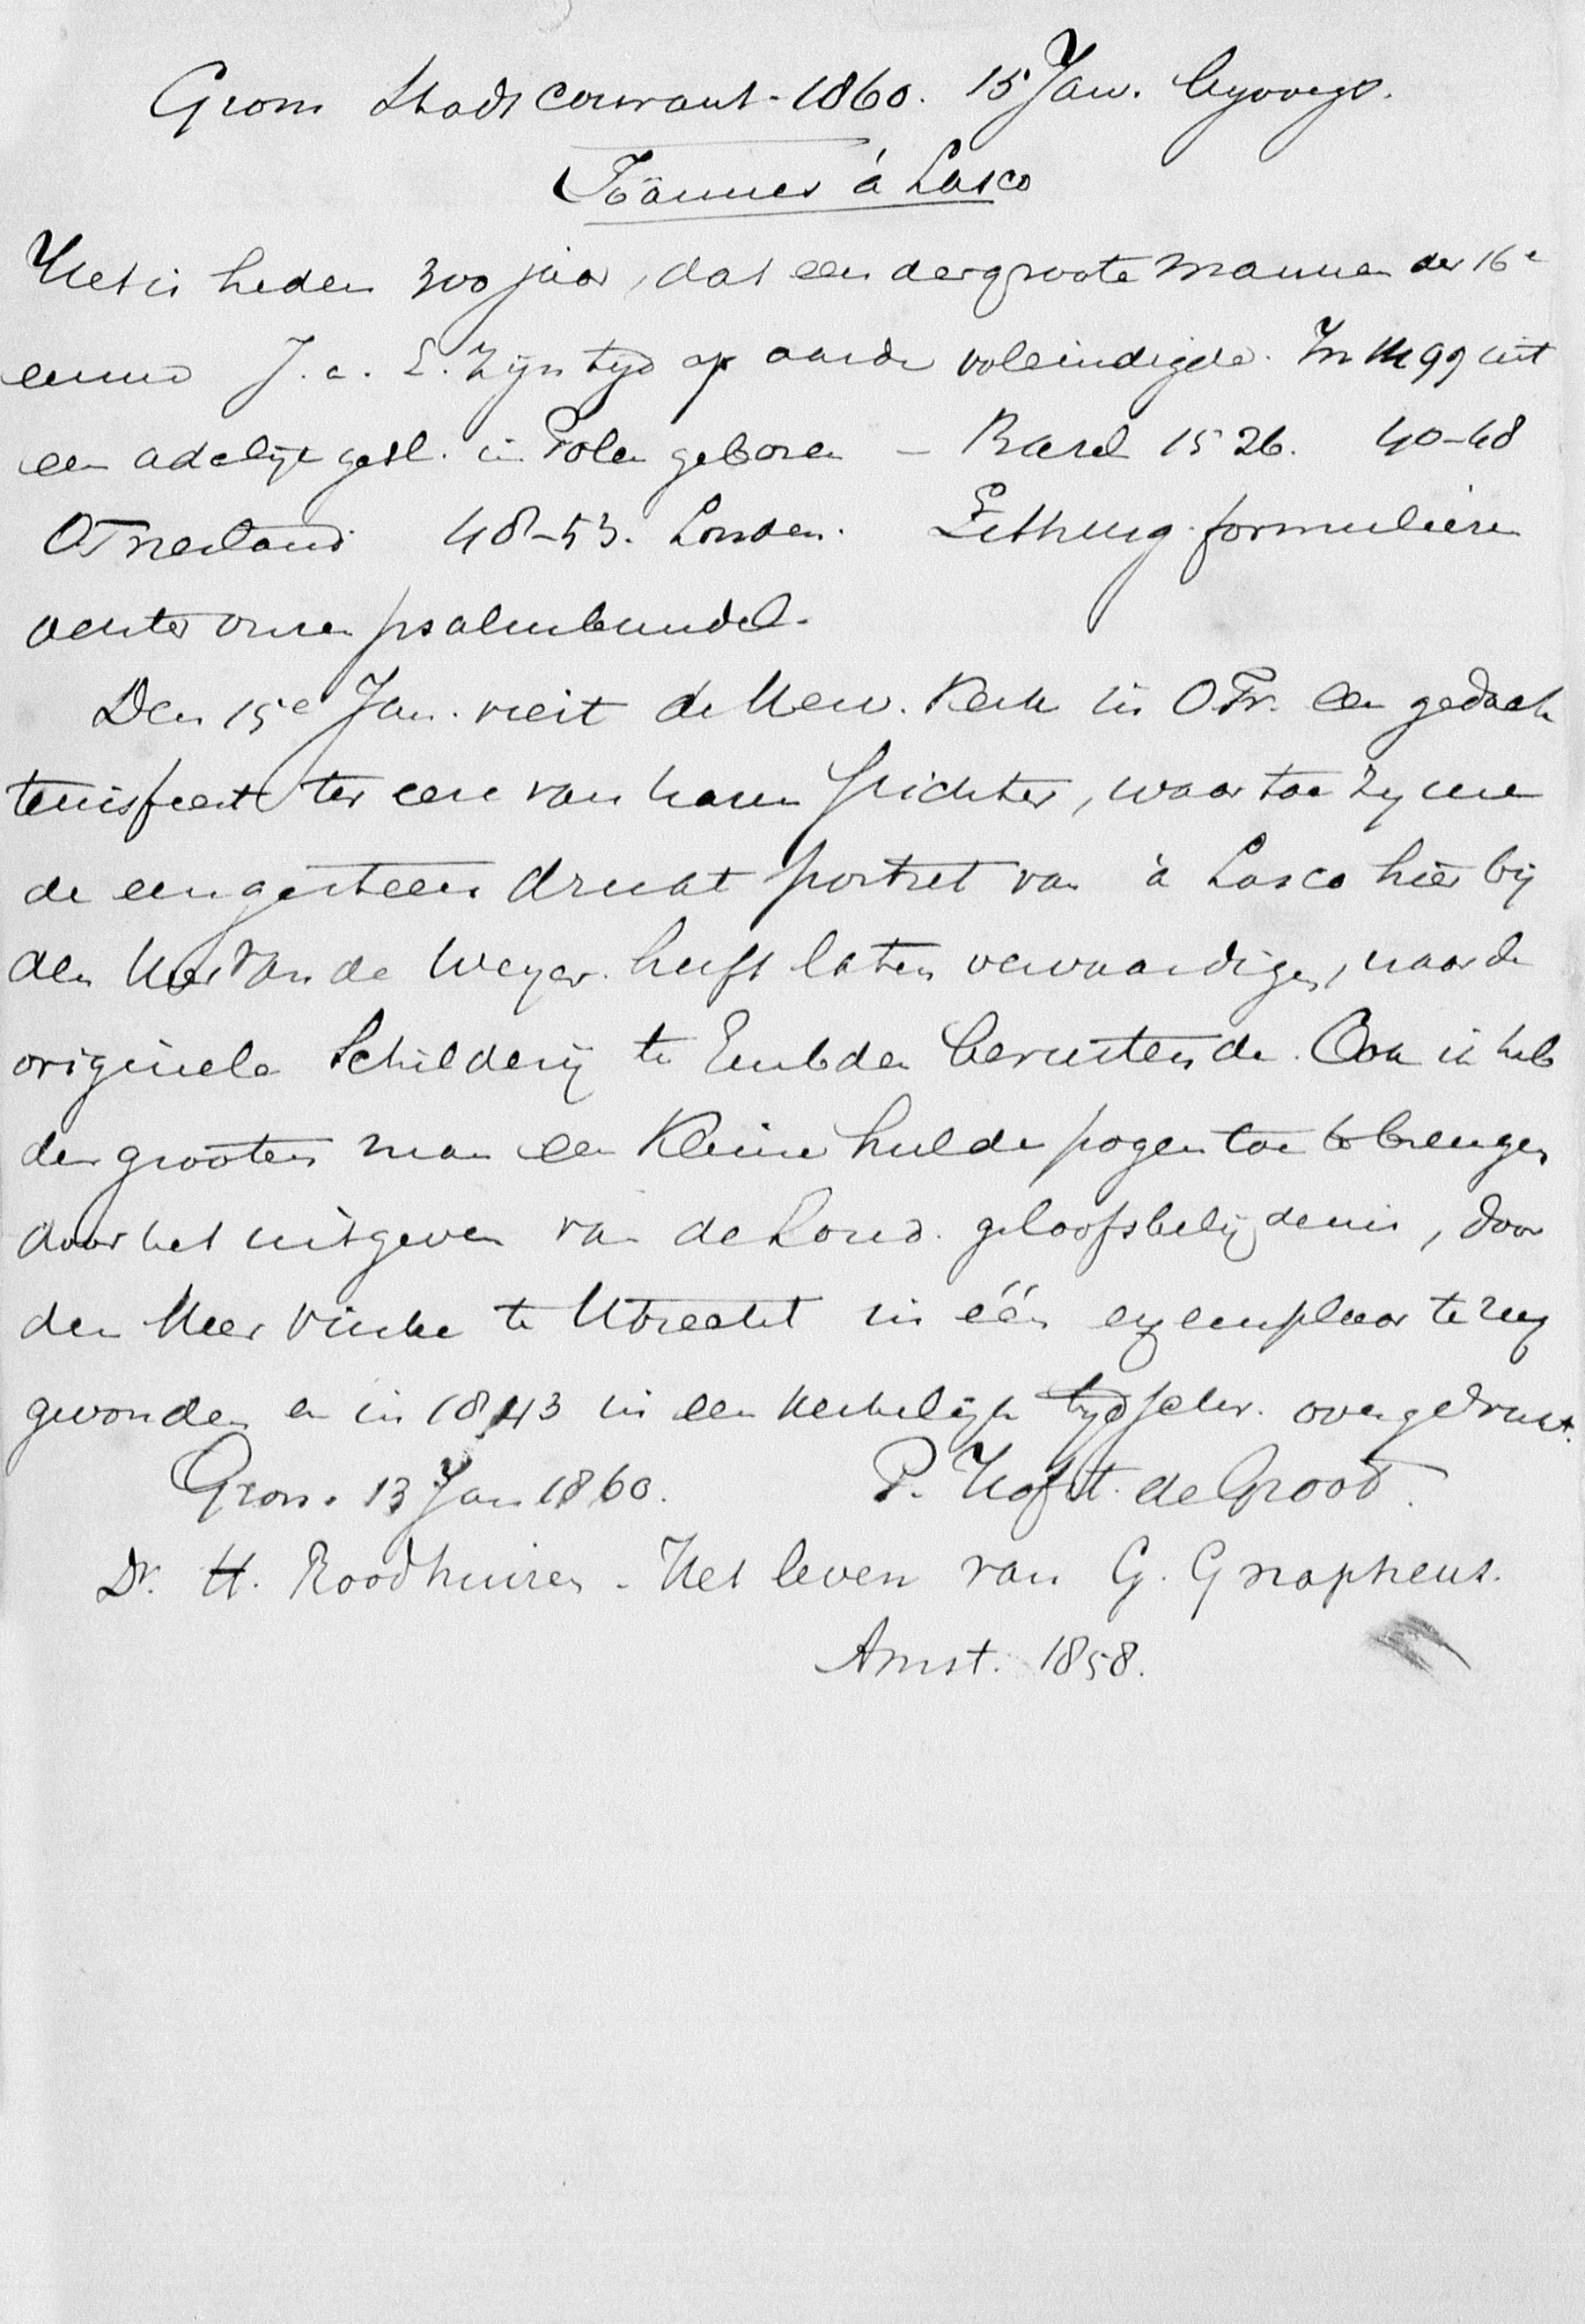 Gron Stads courant - 1860. 15 Jan. Byvoegs.
Joännes á Lasco
Het is heden 300 jaar, dat een der groote mannen der 16e
eeuw J. a. L. zijn tyd op aarde voleindigde. In 1499 uit
een adelijk gesl. in Polen geboren - Basel 1526. 40-48
OFriesland 48-53. Londen. Liturg. formulieren
achter onzen psalmbundel.
Den 15e Jan. viert de Herv. Kerk in O.Fr. een gedach
tenisfeest ter eere van haren stichter, waartoe zy me
de een gesteendrukt portret van à Lasco hier bij
den Heer van de Weyer heeft laten vervaardigen, naar de
originele Schilderij te Embden berustende. Ook ik heb
den grooten man een kleine hulde pogen toe te brengen
door het uitgeven van de Lond. geloofsbelijdenis, door
den Heer Vinke te Utrecht in één exemplaar terug
gevonden en in 1843 in een kerkelijk tydschr. overgedrukt.
Gron. 13 Jan 1860. P. Hofst. de Groot.
Dr. H. Roodhuizen - Het leven van G. Gnapheus.
Amst. 1858.